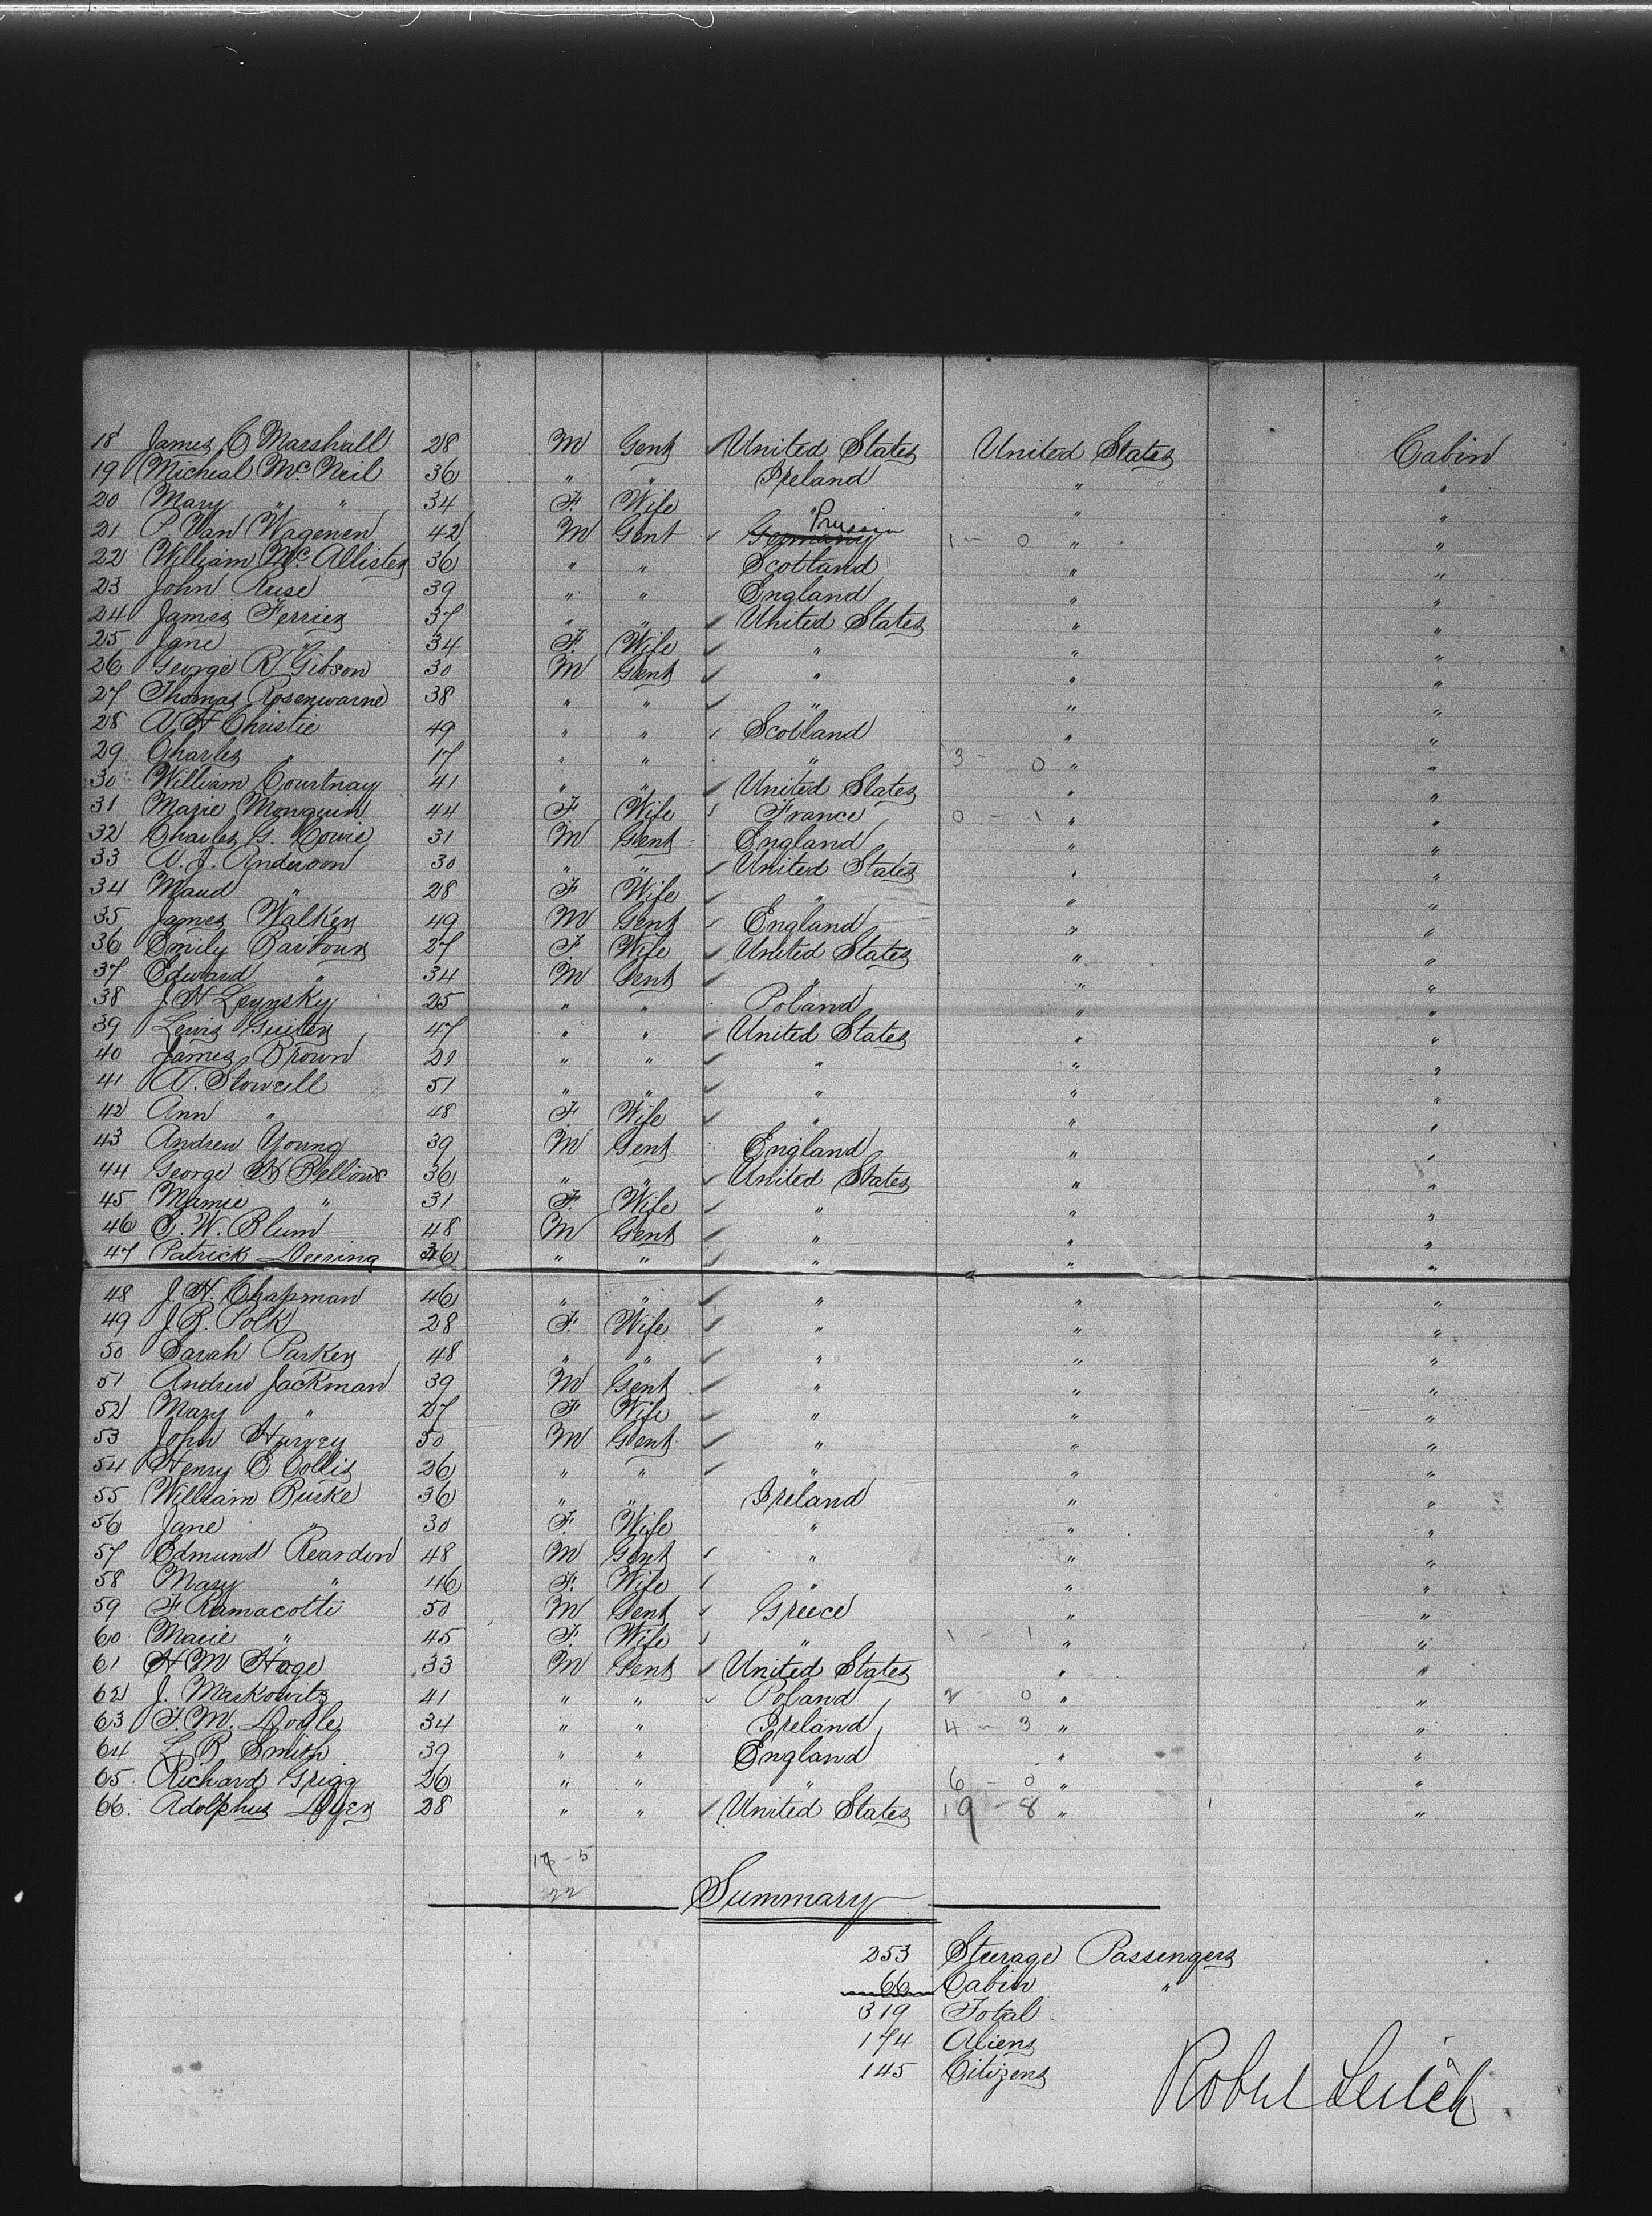 18 James C Marshall 28 M Gent United States United States Cabin
19 Micheal Mc. Neil 36 " " Ireland " "
20 Mary " " 34 F. Wife " " "
21 P. Van Wagenen 42 M Gent Germany Prussia 1 - 0 " "
22 William Mc. Allister 36 " " Scotland " "
23 John Ruse 39 " " England " "
24 James Ferrier 37 " " United States " "
25 Jane " 34 F. Wife " " "
26 George R Gibson 30 M Gent " " "
27 Thomas Rosenwarne 38 " " " " "
28 A H Christie 49 " " Scotland " "
29 Charles " 17 " " " 3 - 0 " "
30 William Courtnay 41 " " United States " "
31 Marie Monquin 44 F. Wife France 0 - 1 " "
32 Charles G. Cowie 31 M Gent England " "
33 A. J. Anderson 30 " " United States " "
34 Maud " 28 F Wife " " "
35 James Walker 49 M Gent England " "
36 Emily Barbour 27 F. Wife United States " "
37 Edward " 34 M Gent " " "
38 J. H 25 " " Poland " "
39 Lewis 47 " " United States " "
40 James Brown 21 " " " " "
41 A. Stowell 51 " " " " "
42 Ann " 48 F. Wife " " "
43 Andrew Young 39 M Gent England " "
44 George H Bellows 36 " " United States " "
45 Mamie " 31 F. Wife " " "
46 W. Blum 48 M Gent " " "
47 Patrick Deering 36 " " " " "
48 J. H. Chapman 46 " " " " "
49 J. B. Polk 28 F. Wife " " "
50 Sarah Parker 48 " " " " "
51 Andrew Jackman 39 M Gent " " "
52 Mary " 27 F Wife " " "
53 John Harvey 50 M Gent " " "
54 Henry C Collis 26 " " " " "
55 William Burke 36 " " Ireland " "
56 Jane " 30 F. Wife " " "
57 Edmund Reardon 48 M Gent " " "
58 Mary " 46 F. Wife " " "
59 F. Ramacotti 50 M Gent Greece " "
60 Marie " 45 F. Wife " 1 - 1 " "
61 H M Hage 33 M Gent United States " "
62 J. Markowitz 41 " " Poland 2 0 " "
63 F. M. Doyle 34 " " Ireland 4 - 3 " "
64 L. B Smith 39 " " England " "
65. Richard Grigg 26 " " " 6 - 0 " "
66. Adolphus Dyer 28 " " United States 19 - 8 " "
- 5
22
Summary
253 Steerage Passengers
66 Cabin "
319 Total
174 Aliens
145 Citizens
Robert Leitch